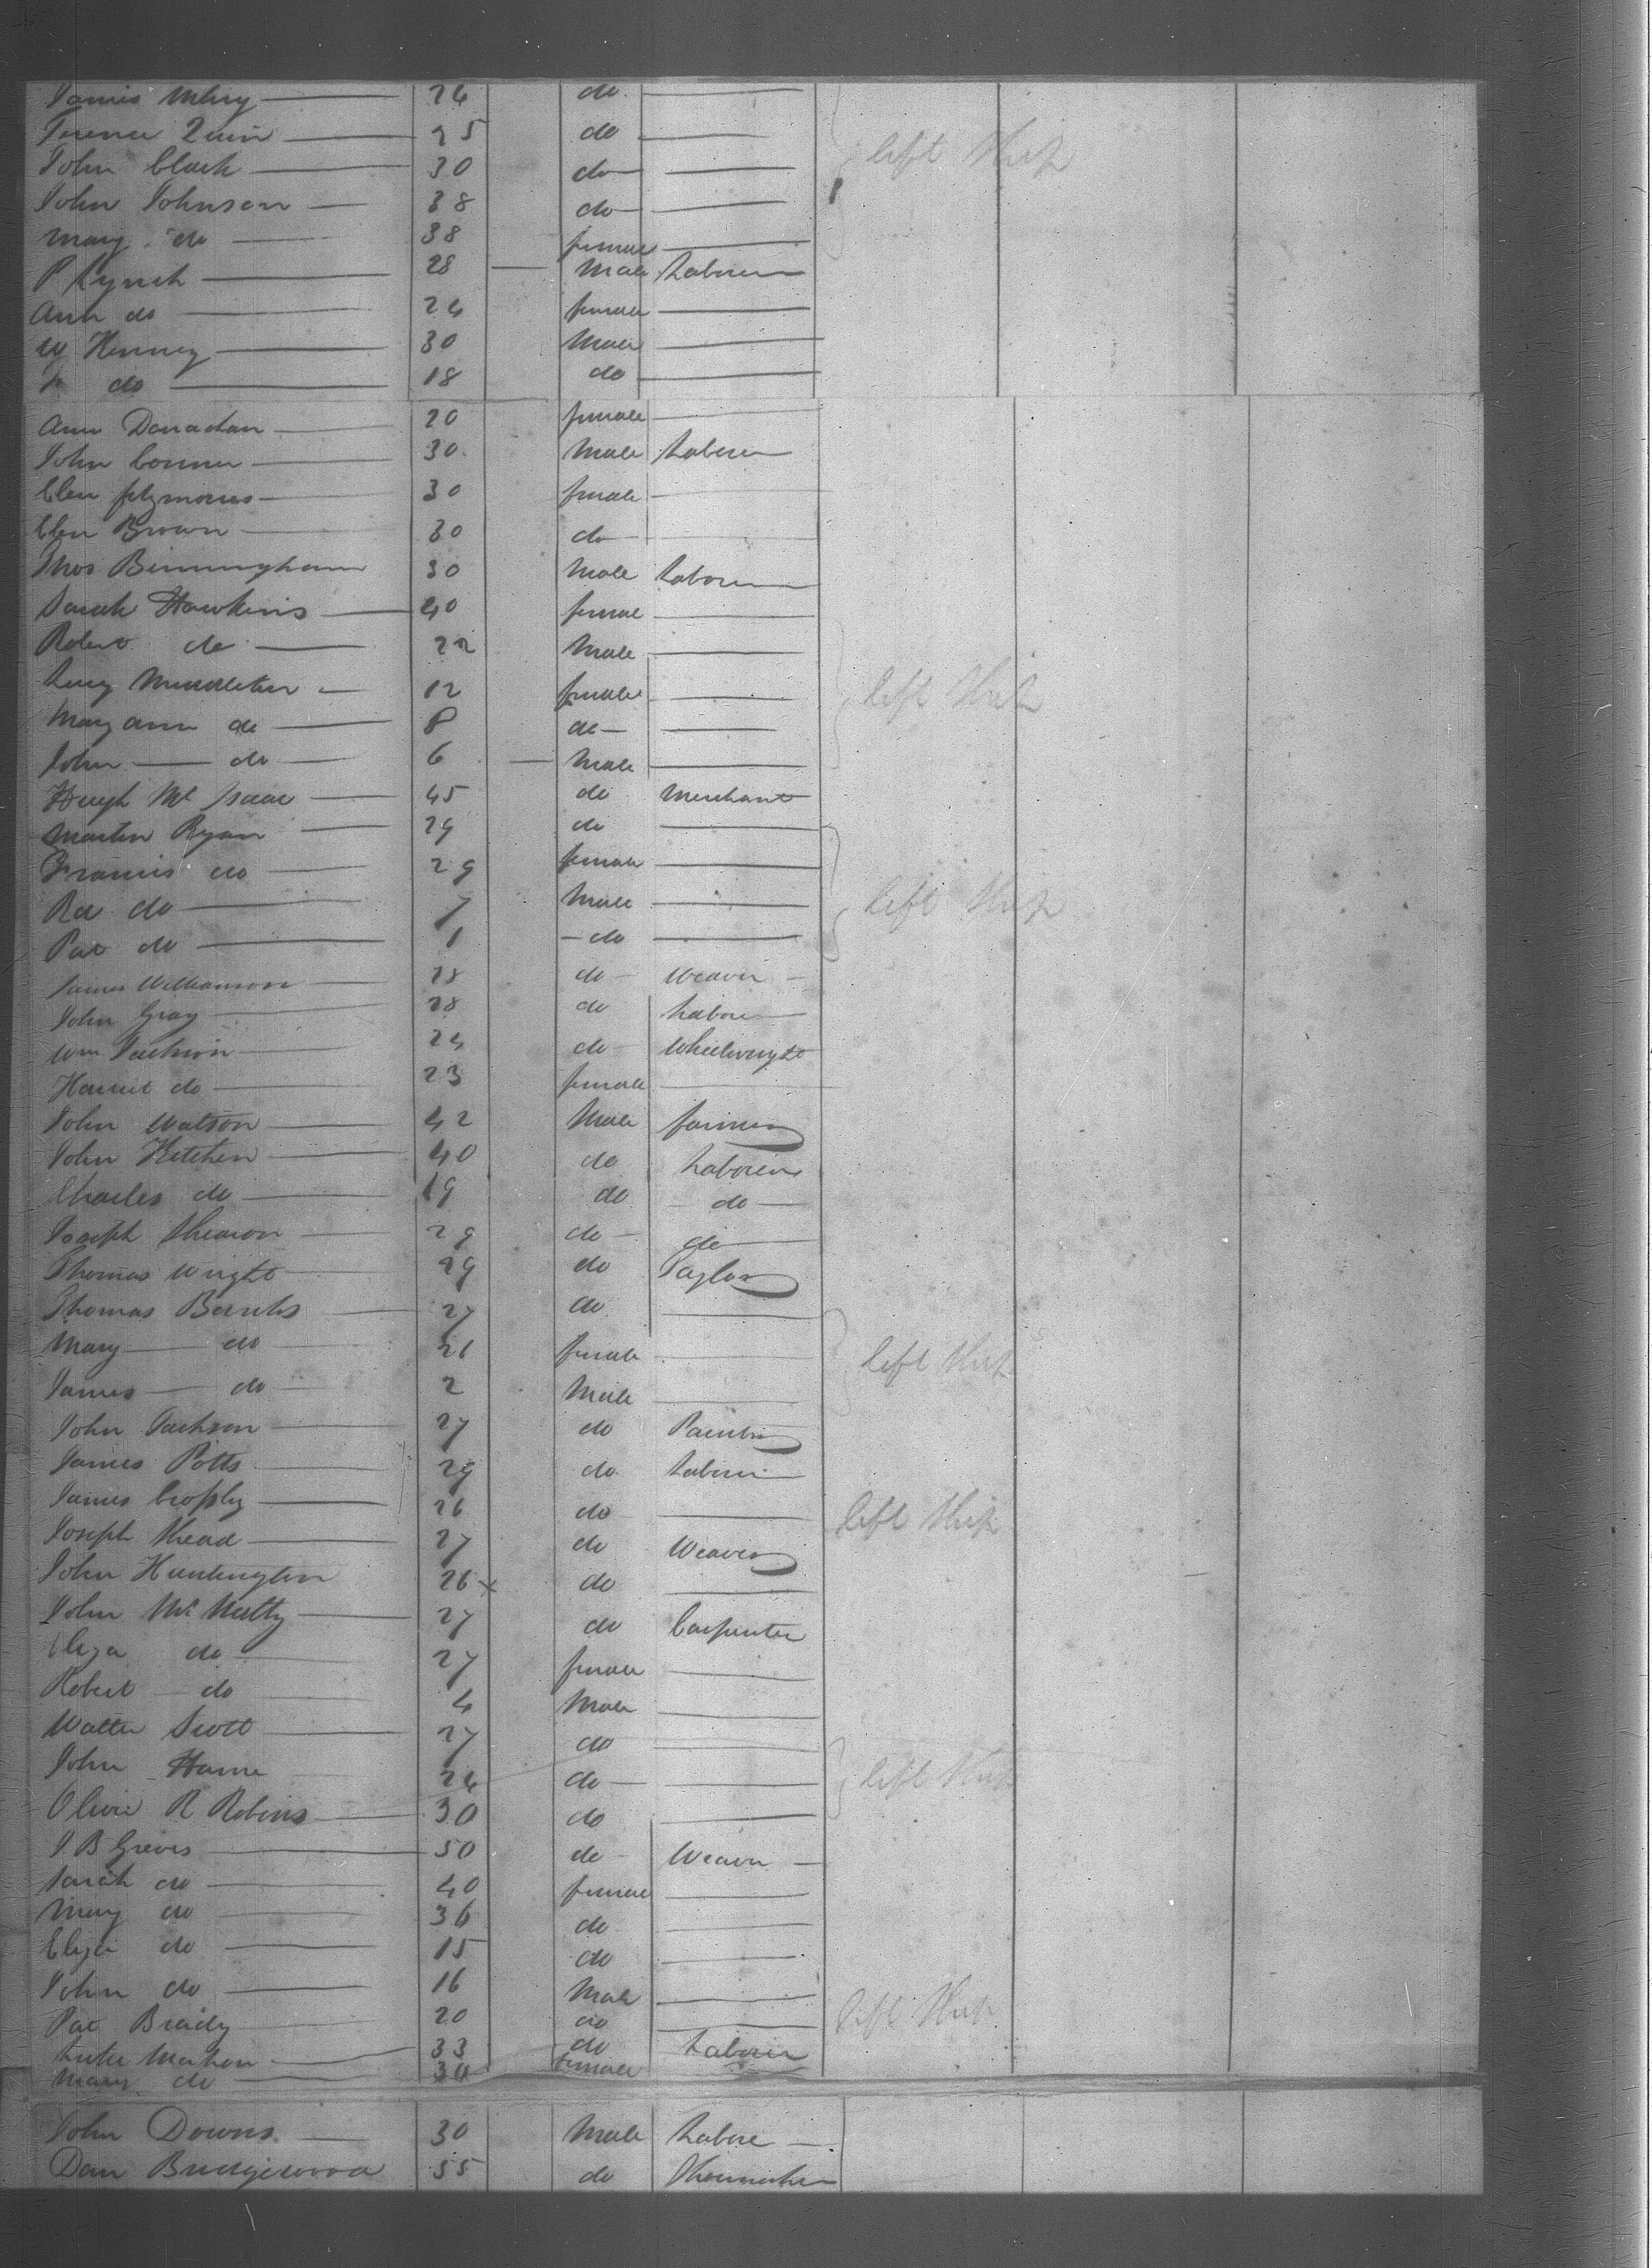 James 24 do
Terence Quin 25 do
John Clark 30 do left Ship
John Johnson 38 do
Mary do 38 female
P Lynch 28 Male Laborer
Ann do 24 female
Henney 30 Male
do 18 do
Ann Donachan 20 female
John Conner 30 Male Laborer
Elen fitzmorris 30 female
Elen Brown 30 do
Thos Birmingham 30 Male Laborer
Sarah Hawkins 40 female
Robert do 22 Male
Lucy Middleton 12 female left Ship
Mary ann do 8 do
John do 6 Male
Hugh Mc Isaac 45 do Merchant
Martin Ryan 29 do
Francis do 29 female
do 7 Male left Ship
Pat do 1 do
James Williamson 28 do Weaver
John Gray 28 do Laborer
Wm Jackson 24 do Wheelwright
Harriet do 23 female
John Watson 42 Male farmer
John Kitchen 40 do Laborer
Charles do 19 do do
Joseph Shearon 29 do do
Thomas Wright 29 do Taylor
Thomas 27 do
Mary do 26 female left Ship
James do 2 Male
John Jackson 27 do Painter
James Potts 29 do Laborer
James Crossley 26 do left Ship
Joseph Shead 27 do Weaver
John Huntington 26 x do
John Mc Nulty 27 do Carpenter
Eliza do 27 female
Robert do 4 Male
Walter Scott 27 do
John Hame 24 do left Ship
Oliver R Robins 30 do
J B Greves 50 do Weaver
Sarah do 40 female
Mary do 36 do
Eliza do 15 do
John do 16 Male
Pat Brady 20 do left Ship
Luke Mahon 33 do Laborer
Mary do 30 female
John Downs 30 Male Labore
Dan Bridgewood 55 do Shoemaker